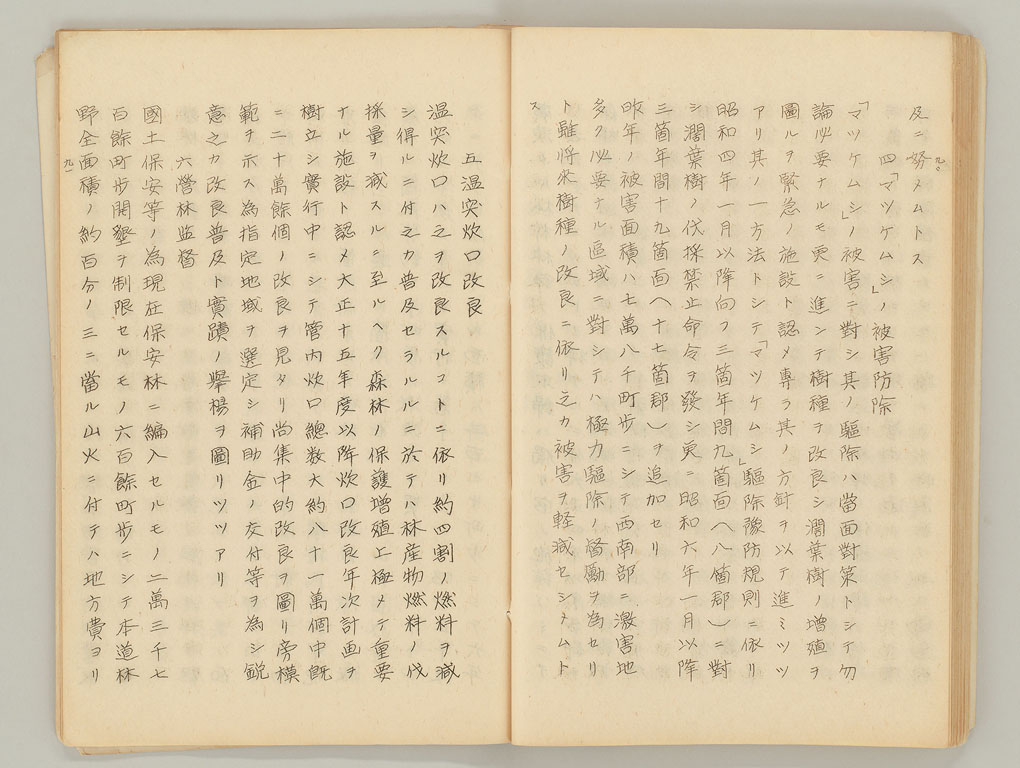 九〇
及ニ努メムトス
四「マツケムシ」ノ被害防除
「マツケムシ」ノ被害ニ對シ其ノ驅除ハ當面對策トシテ勿
論必要ナルモ更ニ進ンテ樹種ヲ改良シ濶葉樹ノ增殖ヲ
圖ルヲ緊急ノ施設ト認メ專ラ其ノ方針ヲ以テ進ミツツ
アリ其ノ一方法トシテ「マツケムシ」驅除豫防規則ニ依リ
昭和四年一月以降向フ三箇年間九箇面(八箇郡)ニ對
シ濶葉樹ノ伐採禁止命令ヲ發シ更ニ昭和六年一月以降
三箇年間十九箇面(十七箇郡)ヲ追加セリ
昨年ノ被害面積ハ七萬八千町歩ニシテ西南部ニ激害地
多ク必要ナル區域ニ對シテハ極力驅除ノ督勵ヲ為セリ
ト雖將來樹種ノ改良ニ依リ之カ被害ヲ軽減セシメムト
ス
五温突炊口改良
温突炊口ハ之ヲ改良スルコトニ依リ約四割ノ燃料ヲ減
シ得ルニ付之カ普及セラルルニ於テハ林産物燃料ノ伐
採量ヲ減スルニ至ルヘク森林ノ保護增殖上極メテ重要
ナル施設ト認メ大正十五年度以降炊口改良年次計画ヲ
樹立シ實行中ニシテ管内炊口總数大約八十一萬個中既
ニ二十萬餘個ノ改良ヲ見タリ尚集中的改良ヲ圖リ旁模
範ヲ示ス為指定地域ヲ選定シ補助金ノ交付等ヲ為シ鋭
意之カ改良普及ト實蹟ノ擧楊ヲ圖リツツアリ
六營林監督
國土保安等ノ為現在保安林ニ編入セルモノ二萬三千七
百餘町歩開墾ヲ制限セルモノ六百餘町歩ニシテ本道林
野全面積ノ約百分ノ三ニ當ル山火ニ付テハ地方費ヨリ
九一